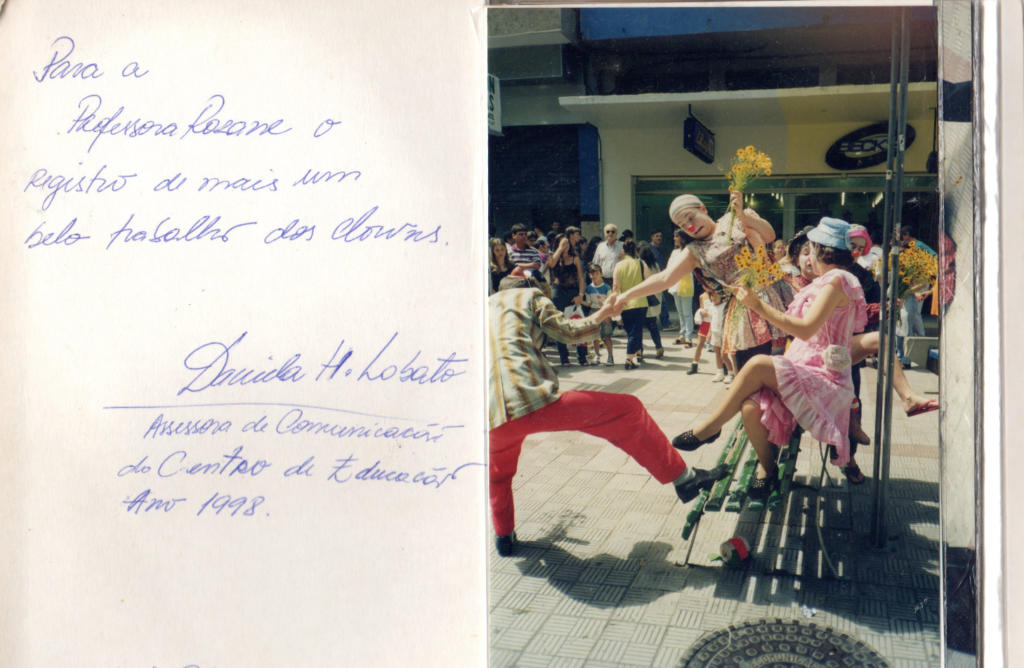 Para a
Professora Rozane o
registro de mais um
belo trabalho dos Clowns.
Daniela H. Lobato
Assessora de Comunicação
do Centro de Educação
Ano 1998.